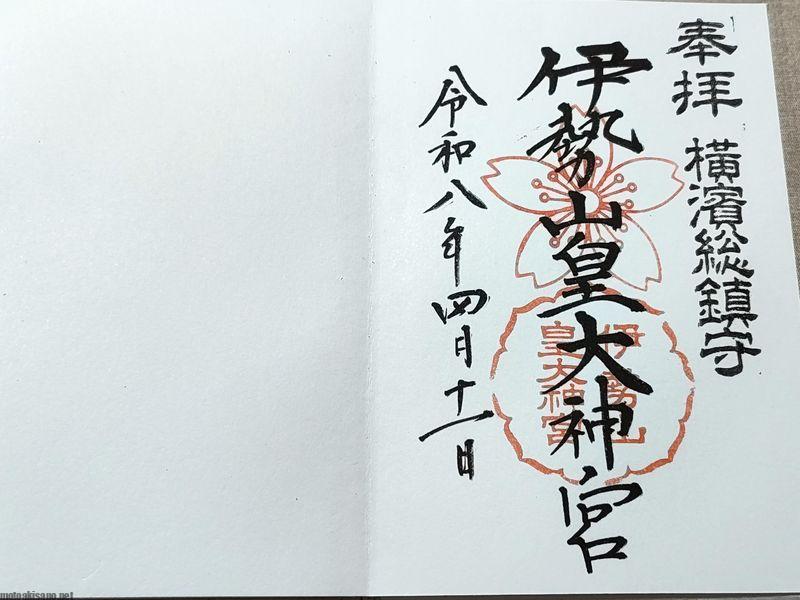 奉拝
横濱総鎮守
伊勢山皇大神宮
伊勢山
皇大神宮
令和八年四月十一日
motoakisano.net